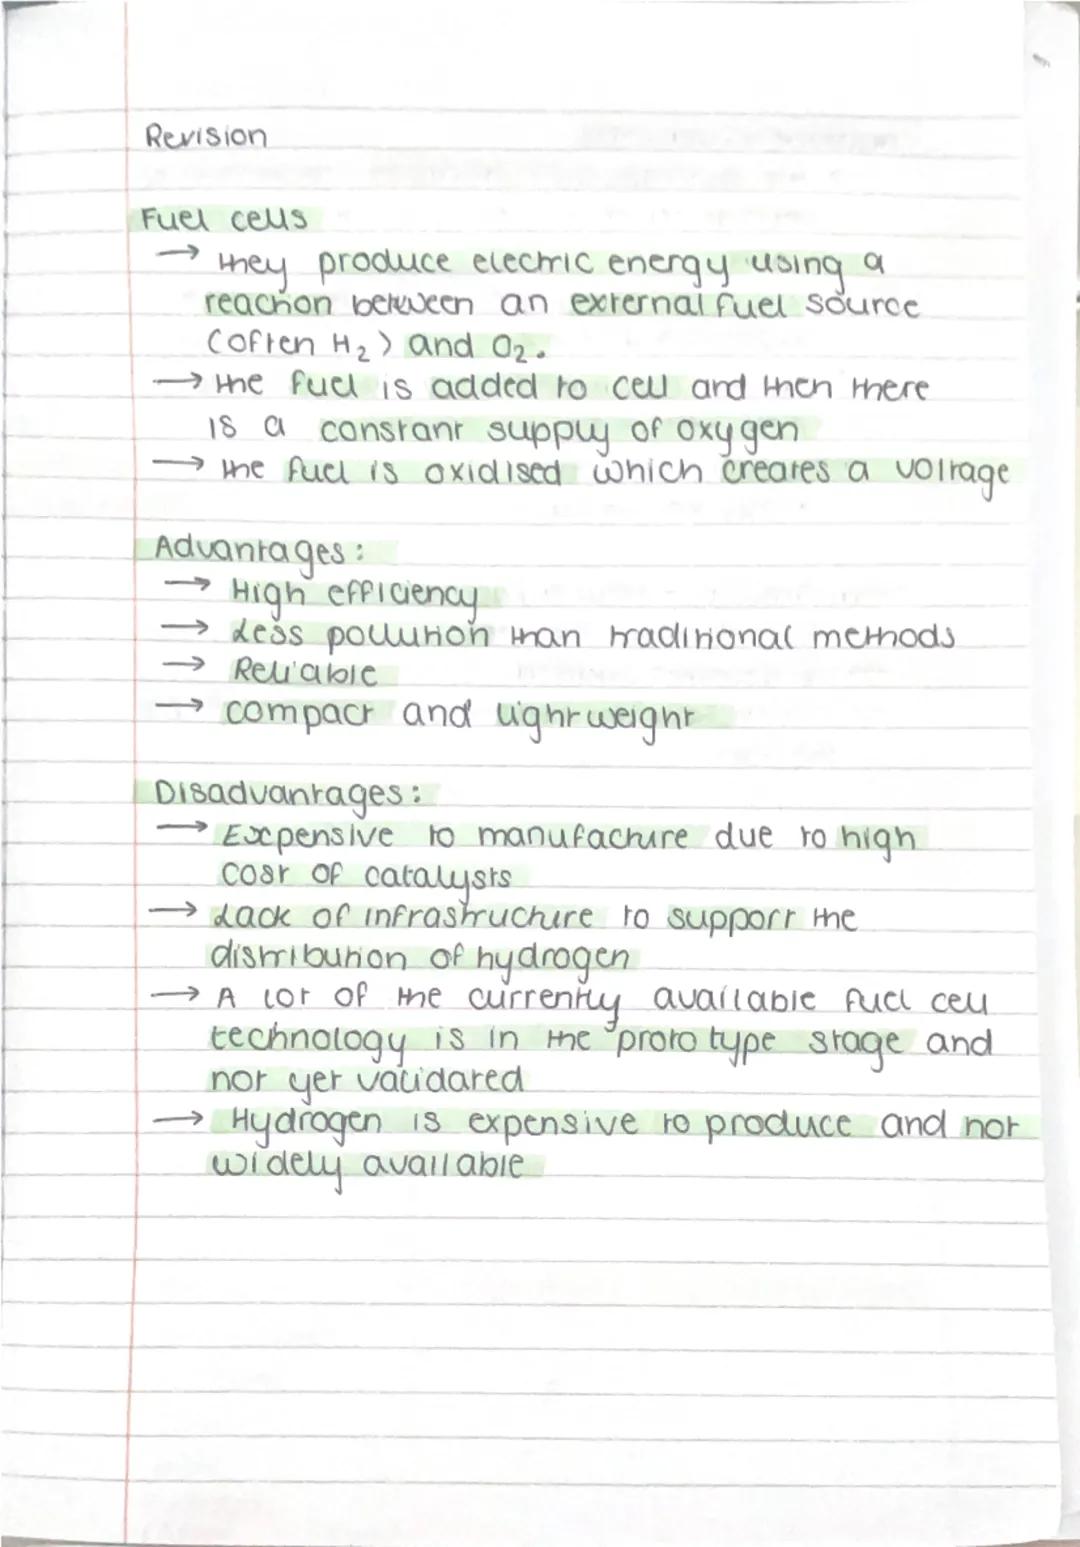 Revision
Fuel cells
→ they produce electric energy using a
reaction between an external fuel source
(often H₂) and O₂.
→ the fuel is added to cell and then there
is a constant supply of oxygen
→ the fuel is oxidised which creates a voltage
Advantages:
→ High efficiency
→ Less pollution than traditional methods
→ Reliable
→ compact and lightweight
Disadvantages:
→ Expensive to manufacture due to high
cost of catalysts
→ Lack of infrastructure to support the
distribution of hydrogen
→ A lot of the currently available fuel cell
technology is in the prototype stage and
not yet validated
→ Hydrogen is expensive to produce and not
widely available